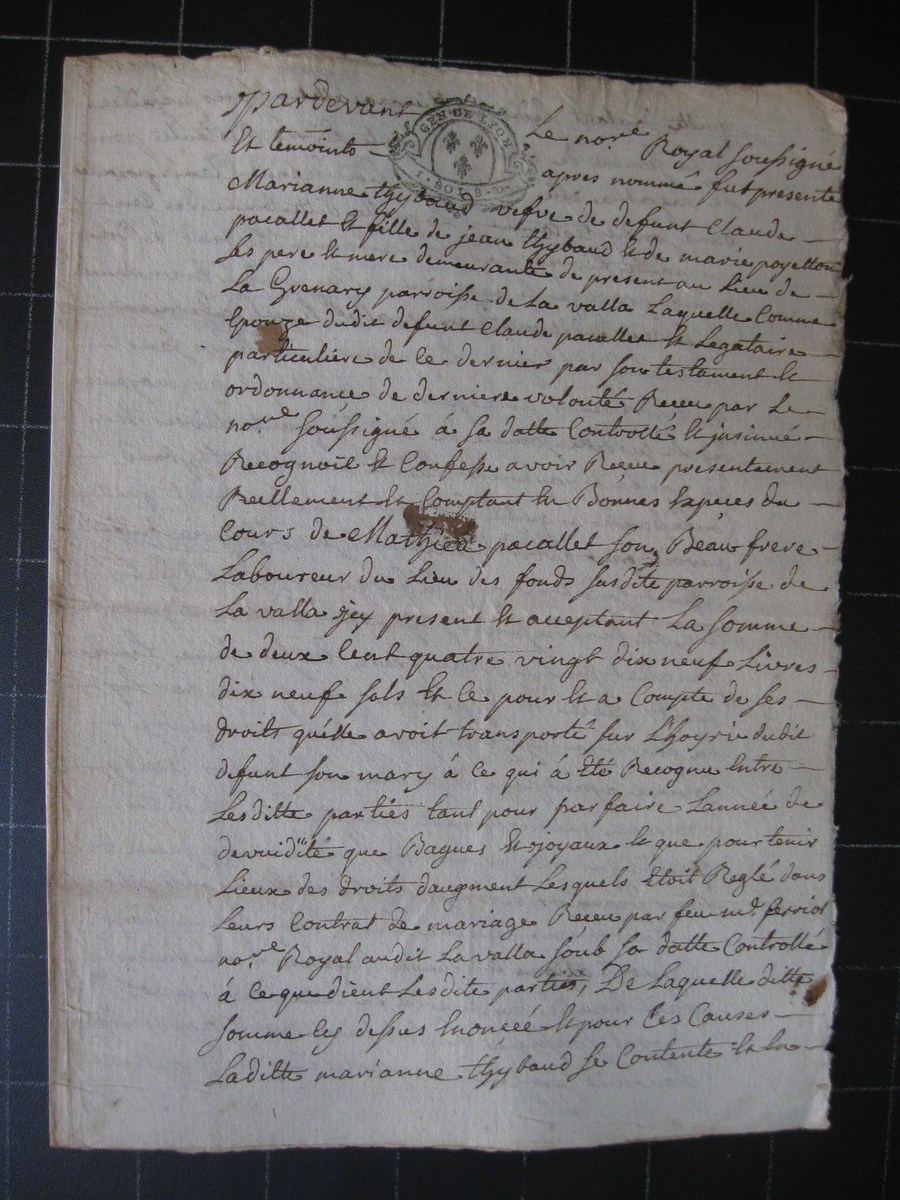 Pardevant Le no.re Royal soussigné
GEN DE LYON
1 SOL 8 D
Et temoints apres nommé fut presente
Marianne thybaud vefve de defunt Claude
pacallet et fille de jean thybaud et de marie poyetton
ses pere et mere demeurante de present au Lieu de
La Grenary parroisse de La valla Laquelle Comme
Epouze dudit defunt Claude pacallet et Legataire
particuliere de Ce dernier par son testament et
ordonnance de derniere volonté Receu par Le
no.re soussigné à sa datte Controllé et jnsinué
Recognoit et Confesse avoir Receu presentement
Reellement et Comptant En Bonnes Especes du
Cours de Mathieu pacallet son Beau frere
Laboureur du Lieu des fonds susdite parroisse de
La valla jcy present et acceptant La somme
de deux Cent quatre vingt dix neuf Livres
dix neuf sols Et Ce pour Et a Compte de ses
droits qu'elle avoit transporté sur L'hoyrie dudit
defunt son mary à Ce qui à Eté Recognu Entre
Lesditte parties tant pour parfaire Lannée de
devuidité que Bagues Et joyaux Et que pour tenir
Lieux des droits daugment Lesquels Etoit Reglé dans
Leurs Contrat de mariage Receu par feu m.e ferriol
no.re Royal audit Lavalla soub sa datte Controllé
à Ce que dient Lesdite parties, De Laquelle ditte
somme Cy dessus Enoncéé Et pour Les Causes
Laditte marianne thybaud se Contente Et En